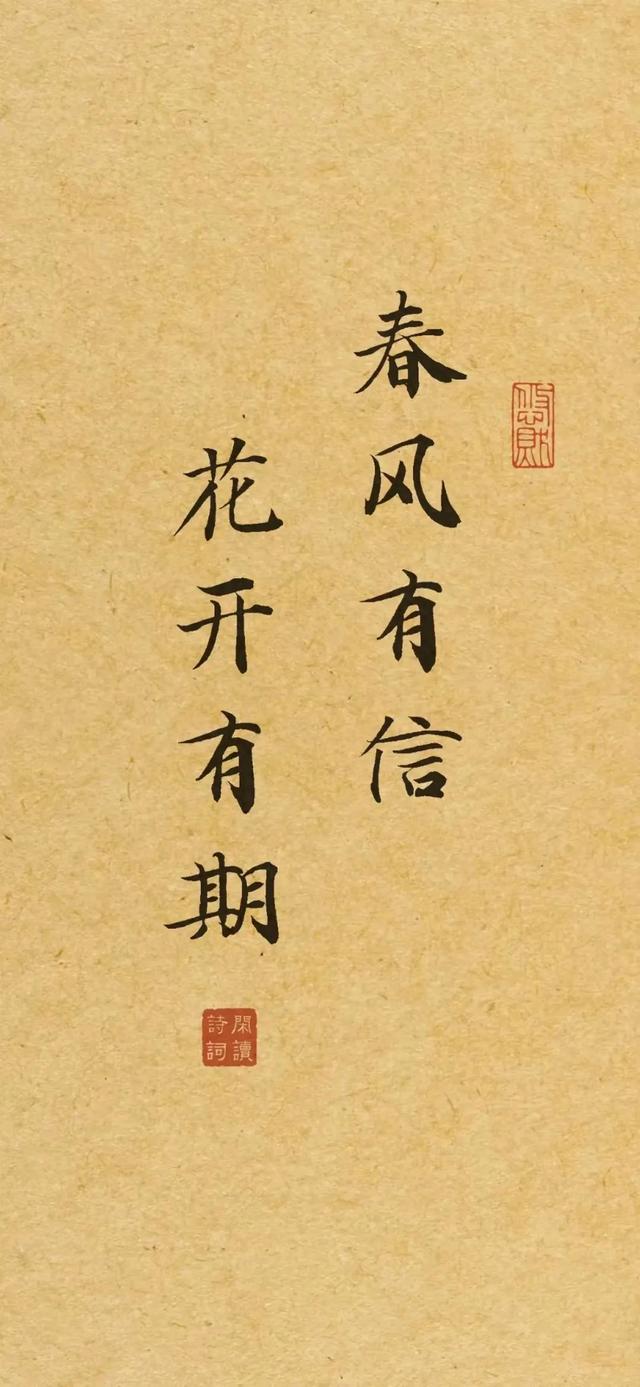 春风有信
花开有期
閑讀
詩詞